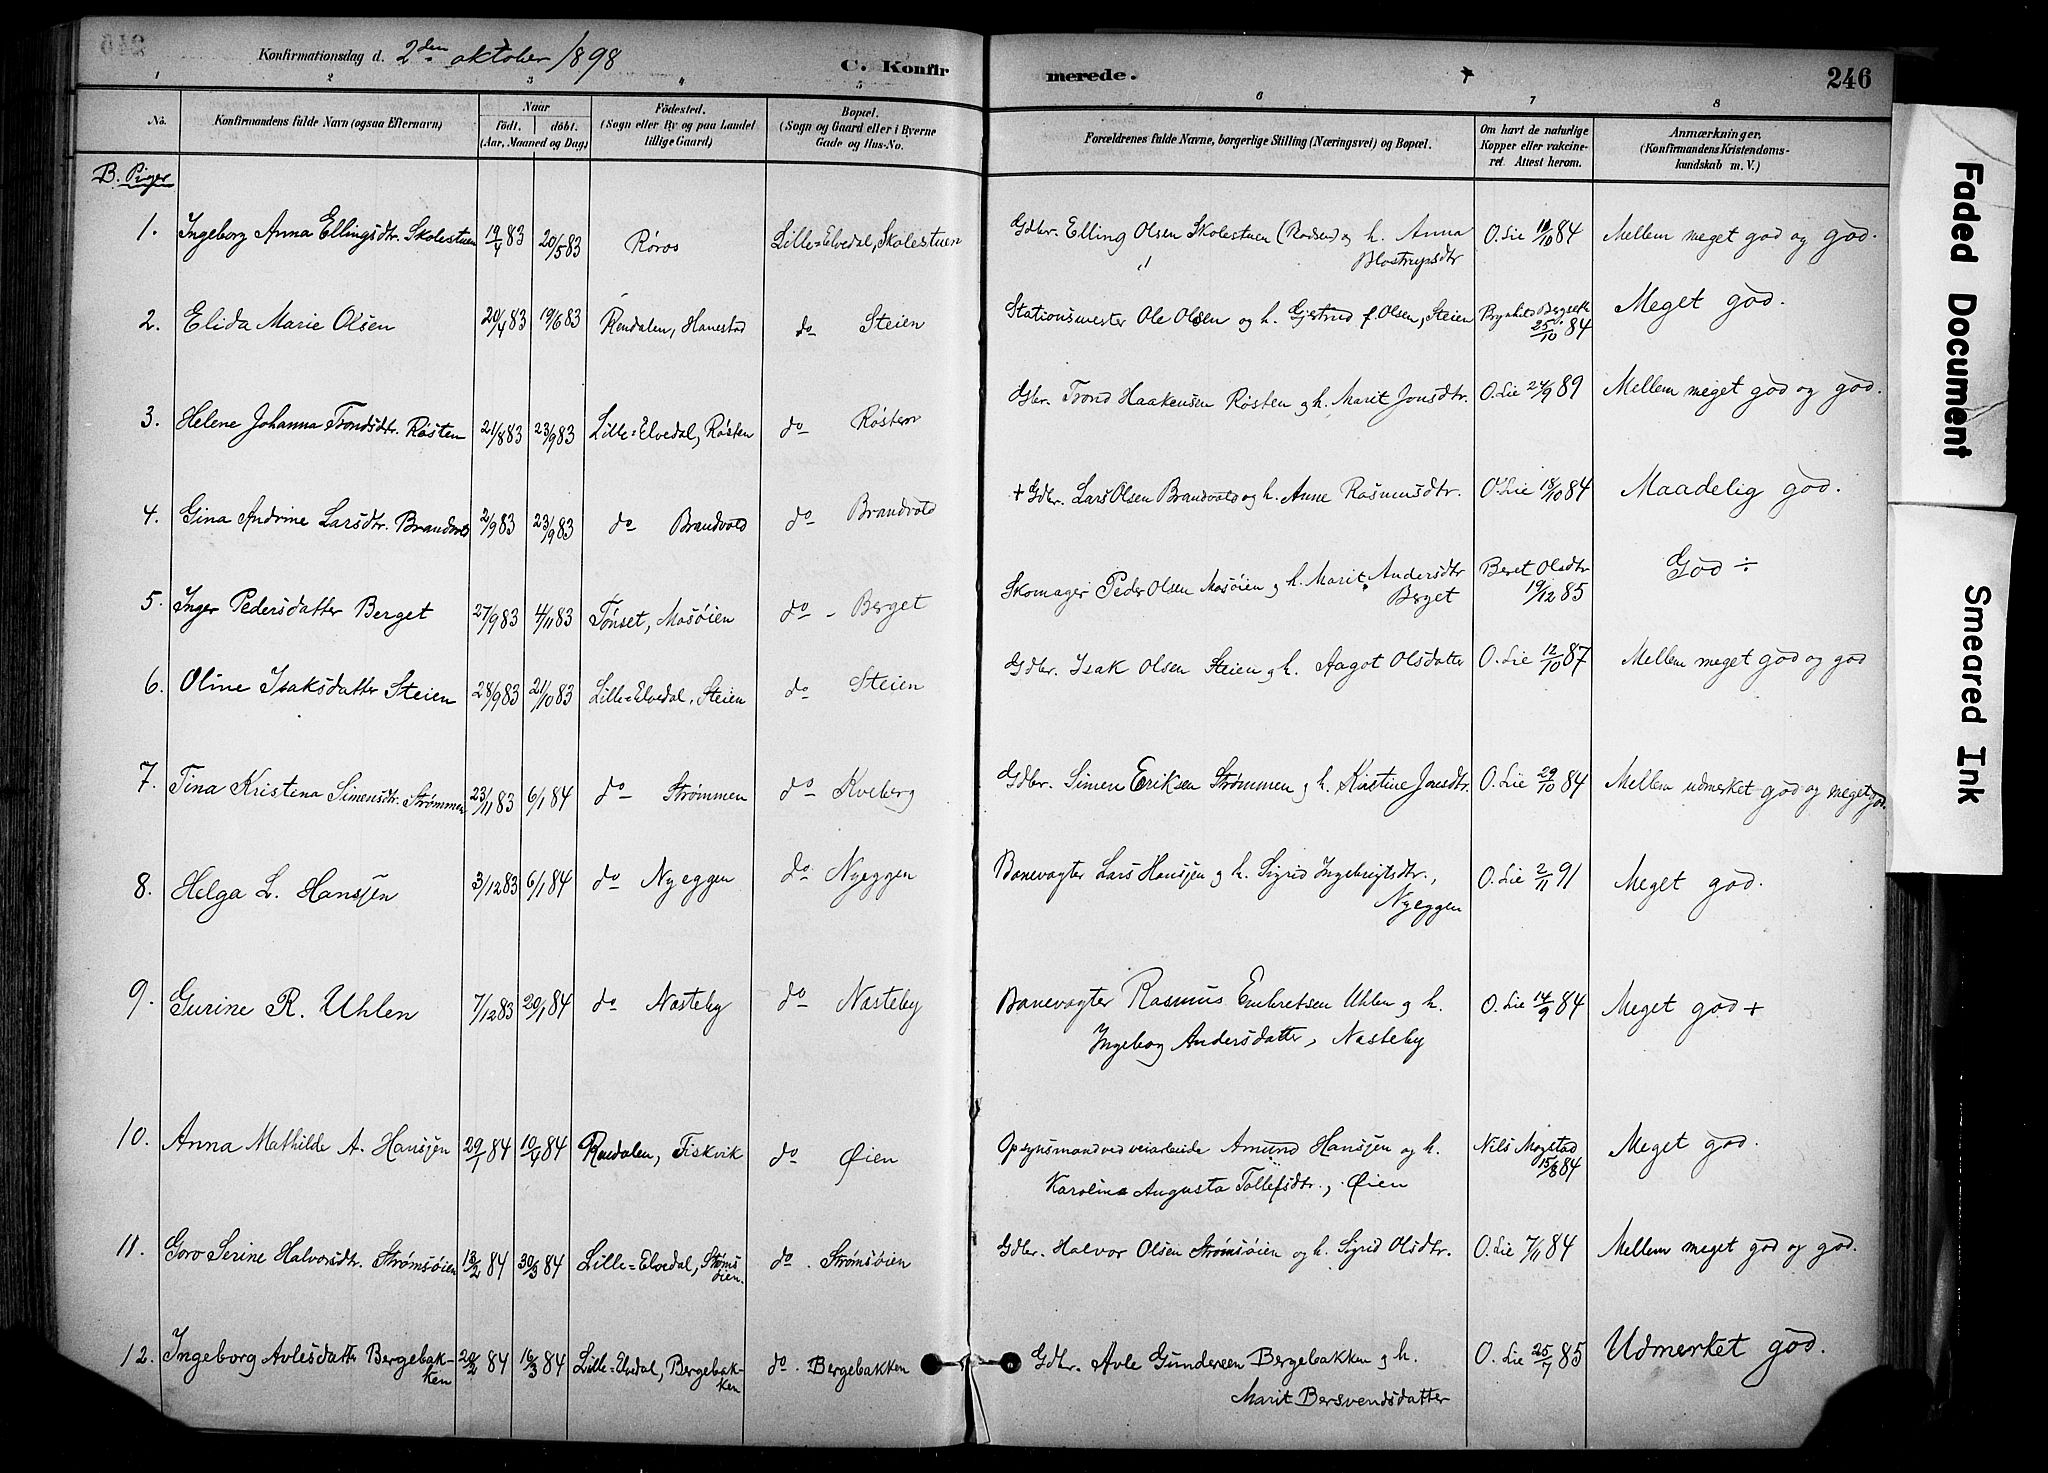 Konfirmationsdag d. 2den oktober 1898
C. Konfirmerede.
246
1 2 3 4 5 6 7 8
No.
Konfirmandens fulde Navn (ogsaa Efternavn)
Naar
födt. döbt.
(Aar, Maaned og Dag)
Födested.
(Sogn eller By og paa Landet
tillige Gaard)
Bopæl.
(Sogn og Gaard eller i Byerne
Gade og Hus-No.
Forældrenes fulde Navne, borgerlige Stilling (Næringsvei) og Bopæl.
Om havt de naturlige
Kopper eller vakcine-
ret. Attest herom.
Anmærkninger.
(Konfirmandens Kristendoms-
kundskab m. V.)
B. Piger
1. Ingeborg Anna Ellingsdtr. Skolestuen 20/5 83 Röros Lille-Elvedal, Skolestuen Gdbr. Elling Olsen Skolestuen og h. Anna O. Lie 84 Mellem meget god og god.
Blostrupsdtr
2. Elida Marie Olsen 20/4 83 19/6 83 Rendalen, Hanestad do Steien Stationsmester Ole Olsen og h. Gjertrud f. Olsen, Steien Meget god.
25/10 84
3. Helene Johanna Trondsdtr. Røsten 21/8 83 23/9 83 Lille-Elvedal, Røsten do Røsten Gbr. Trond Haakensen Røsten og h. Marit Jonsdtr. O. Lie 24/9 89 Mellem meget god og god.
4. Gina Andrine Larsdtr. Brandvold 2/9 83 23/9 83 do Brandvold do Brandvold + Gdbr. Lars Olsen Brandvold og h. Anne Rasmusdtr. O. Lie 18/10 84 Maadelig god.
5. Inger Pedersdatter Berget 27/9 83 4/11 83 Tønset, Mosøien do - Berget Skomager Peder Olsen Mosøien og h. Marit Andersdtr Beret Olsdtr God ÷
Berget 19/12 85
6. Oline Isaksdatter Steien 28/9 83 21/10 83 Lille-Elvedal, Steien do Steien Gdbr. Isak Olsen Steien og h. Aagot Olsdatter O. Lie 12/10 87 Mellem meget god og god
7. Tina Kristina Simensdtr. Strømmen 23/11 83 6/1 84 do Strømmen do Kveberg Gdbr. Simen Eriksen Strømmen og h. Kristine Jonsdtr. O. Lie 29/10 84 Mellem udmerket god og meget god.
8. Helga L. Hansjen 3/12 83 6/1 84 do Nyeggen do Nyeggen Banevogter Lars Hansjen og h. Sigrid Ingebrigtsdtr., O. Lie 2/11 91 Meget god.
Nyeggen
9. Gurine R. Uhlen 7/12 83 20/1 84 do Nasteby do Nasteby Banevogter Rasmus Embretsen Uhlen og h. O. Lie 14/9 84 Meget god +
Ingebog Andersdatter, Nasteby
10. Anna Mathilde A. Hansjen 29/1 84 10/4 84 Rendalen, Fiskvik do Øien Opsynsmand ved veiarbeide Amund Hansjen og h. Nils Mogstad Meget god.
Karoline Augusta Tollefsdtr., Øien 15/8 84
11. Goro Serine Halvorsdtr. Strømsøien 13/2 84 30/3 84 Lille-Elvedal, Strøms do . Strømsøien Gdbr. Halvor Olsen Strømsøien og h. Sigrid Olsdtr. O. Lie 7/11 84 Mellem meget god og god.
øien.
12. Ingeborg Avlesdatter Bergebak- 20/2 84 16/3 84 Lille-Elvedal, Bergebak- do . Bergebakken Gdbr. Avle Gundersen Bergebakken og h. O. Lie 25/7 85 Udmerket god.
ken ken Marit Bersvendsdatter
Faded Document
Smeared Ink